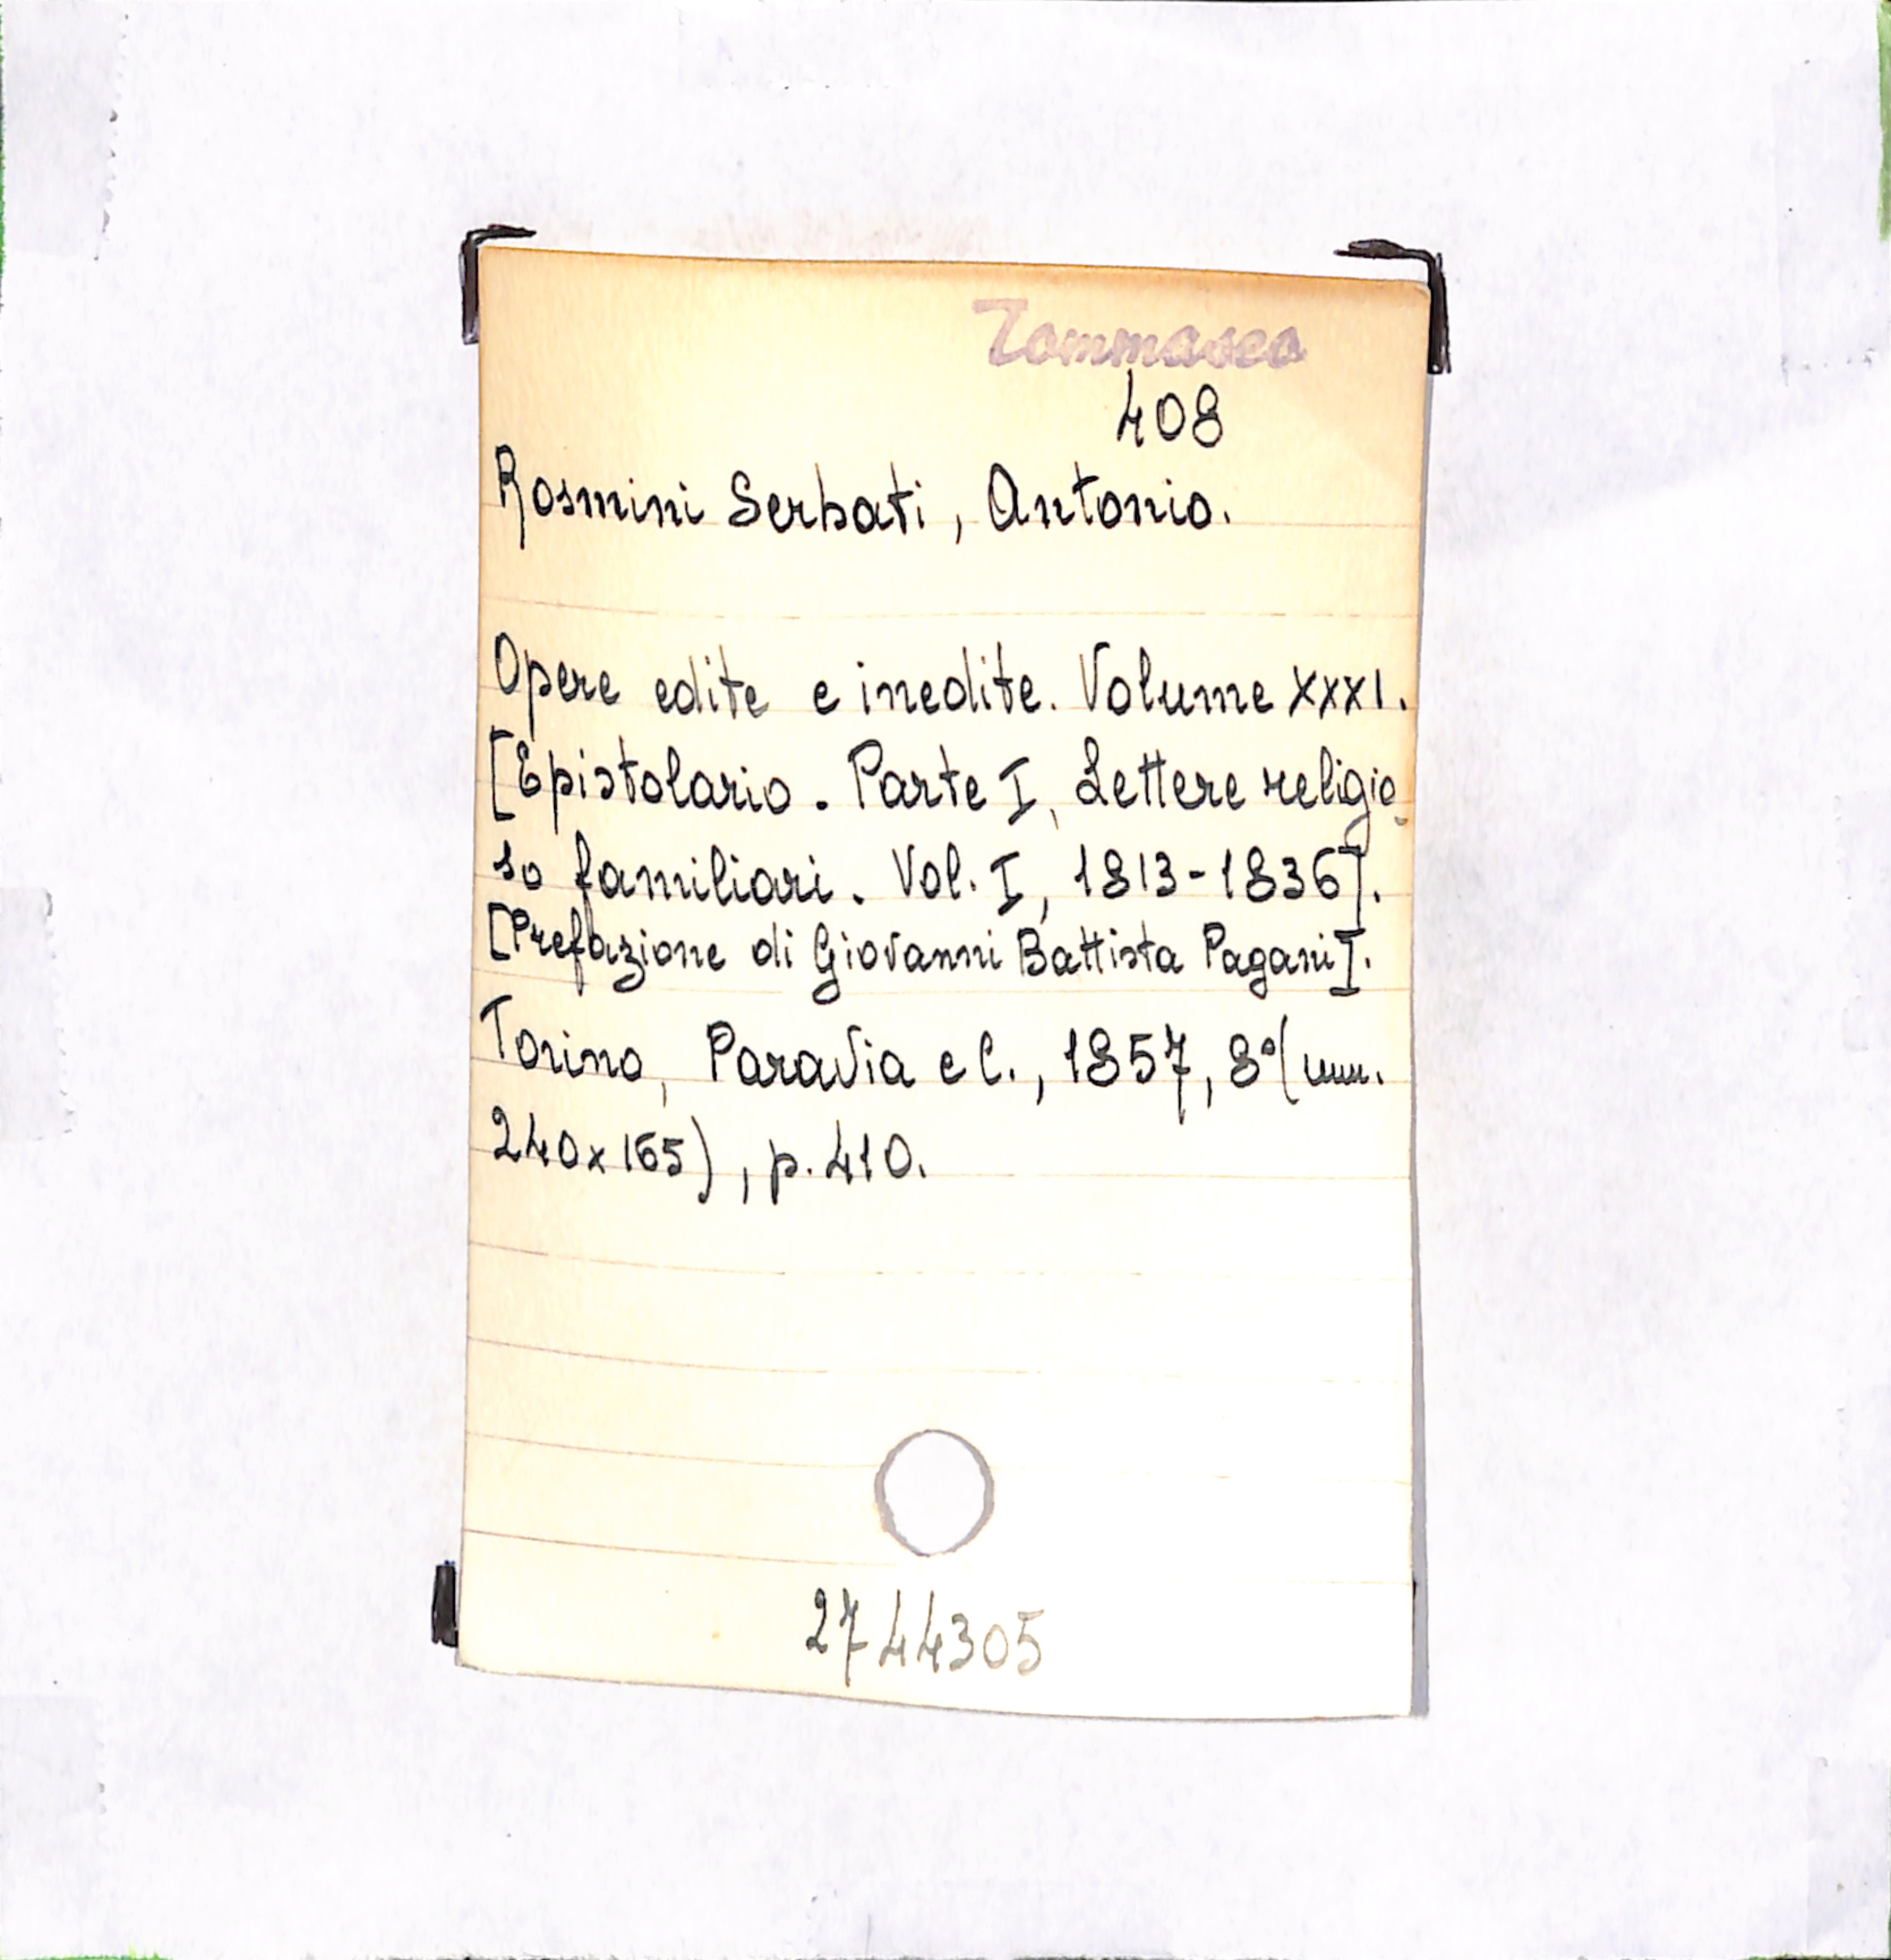 Tommaseo
408
Rosmini Serbati, Antonio.
Opere edite e inedite. Volume XXXI.
[Epistolario. Parte I, Lettere religio-
so familiari. Vol. I, 1813-1836].
[Prefazione di Giovanni Battista Pagani].
Torino, Paravia e C., 1857, 8°(mm.
240x165), p. 410.
2744305